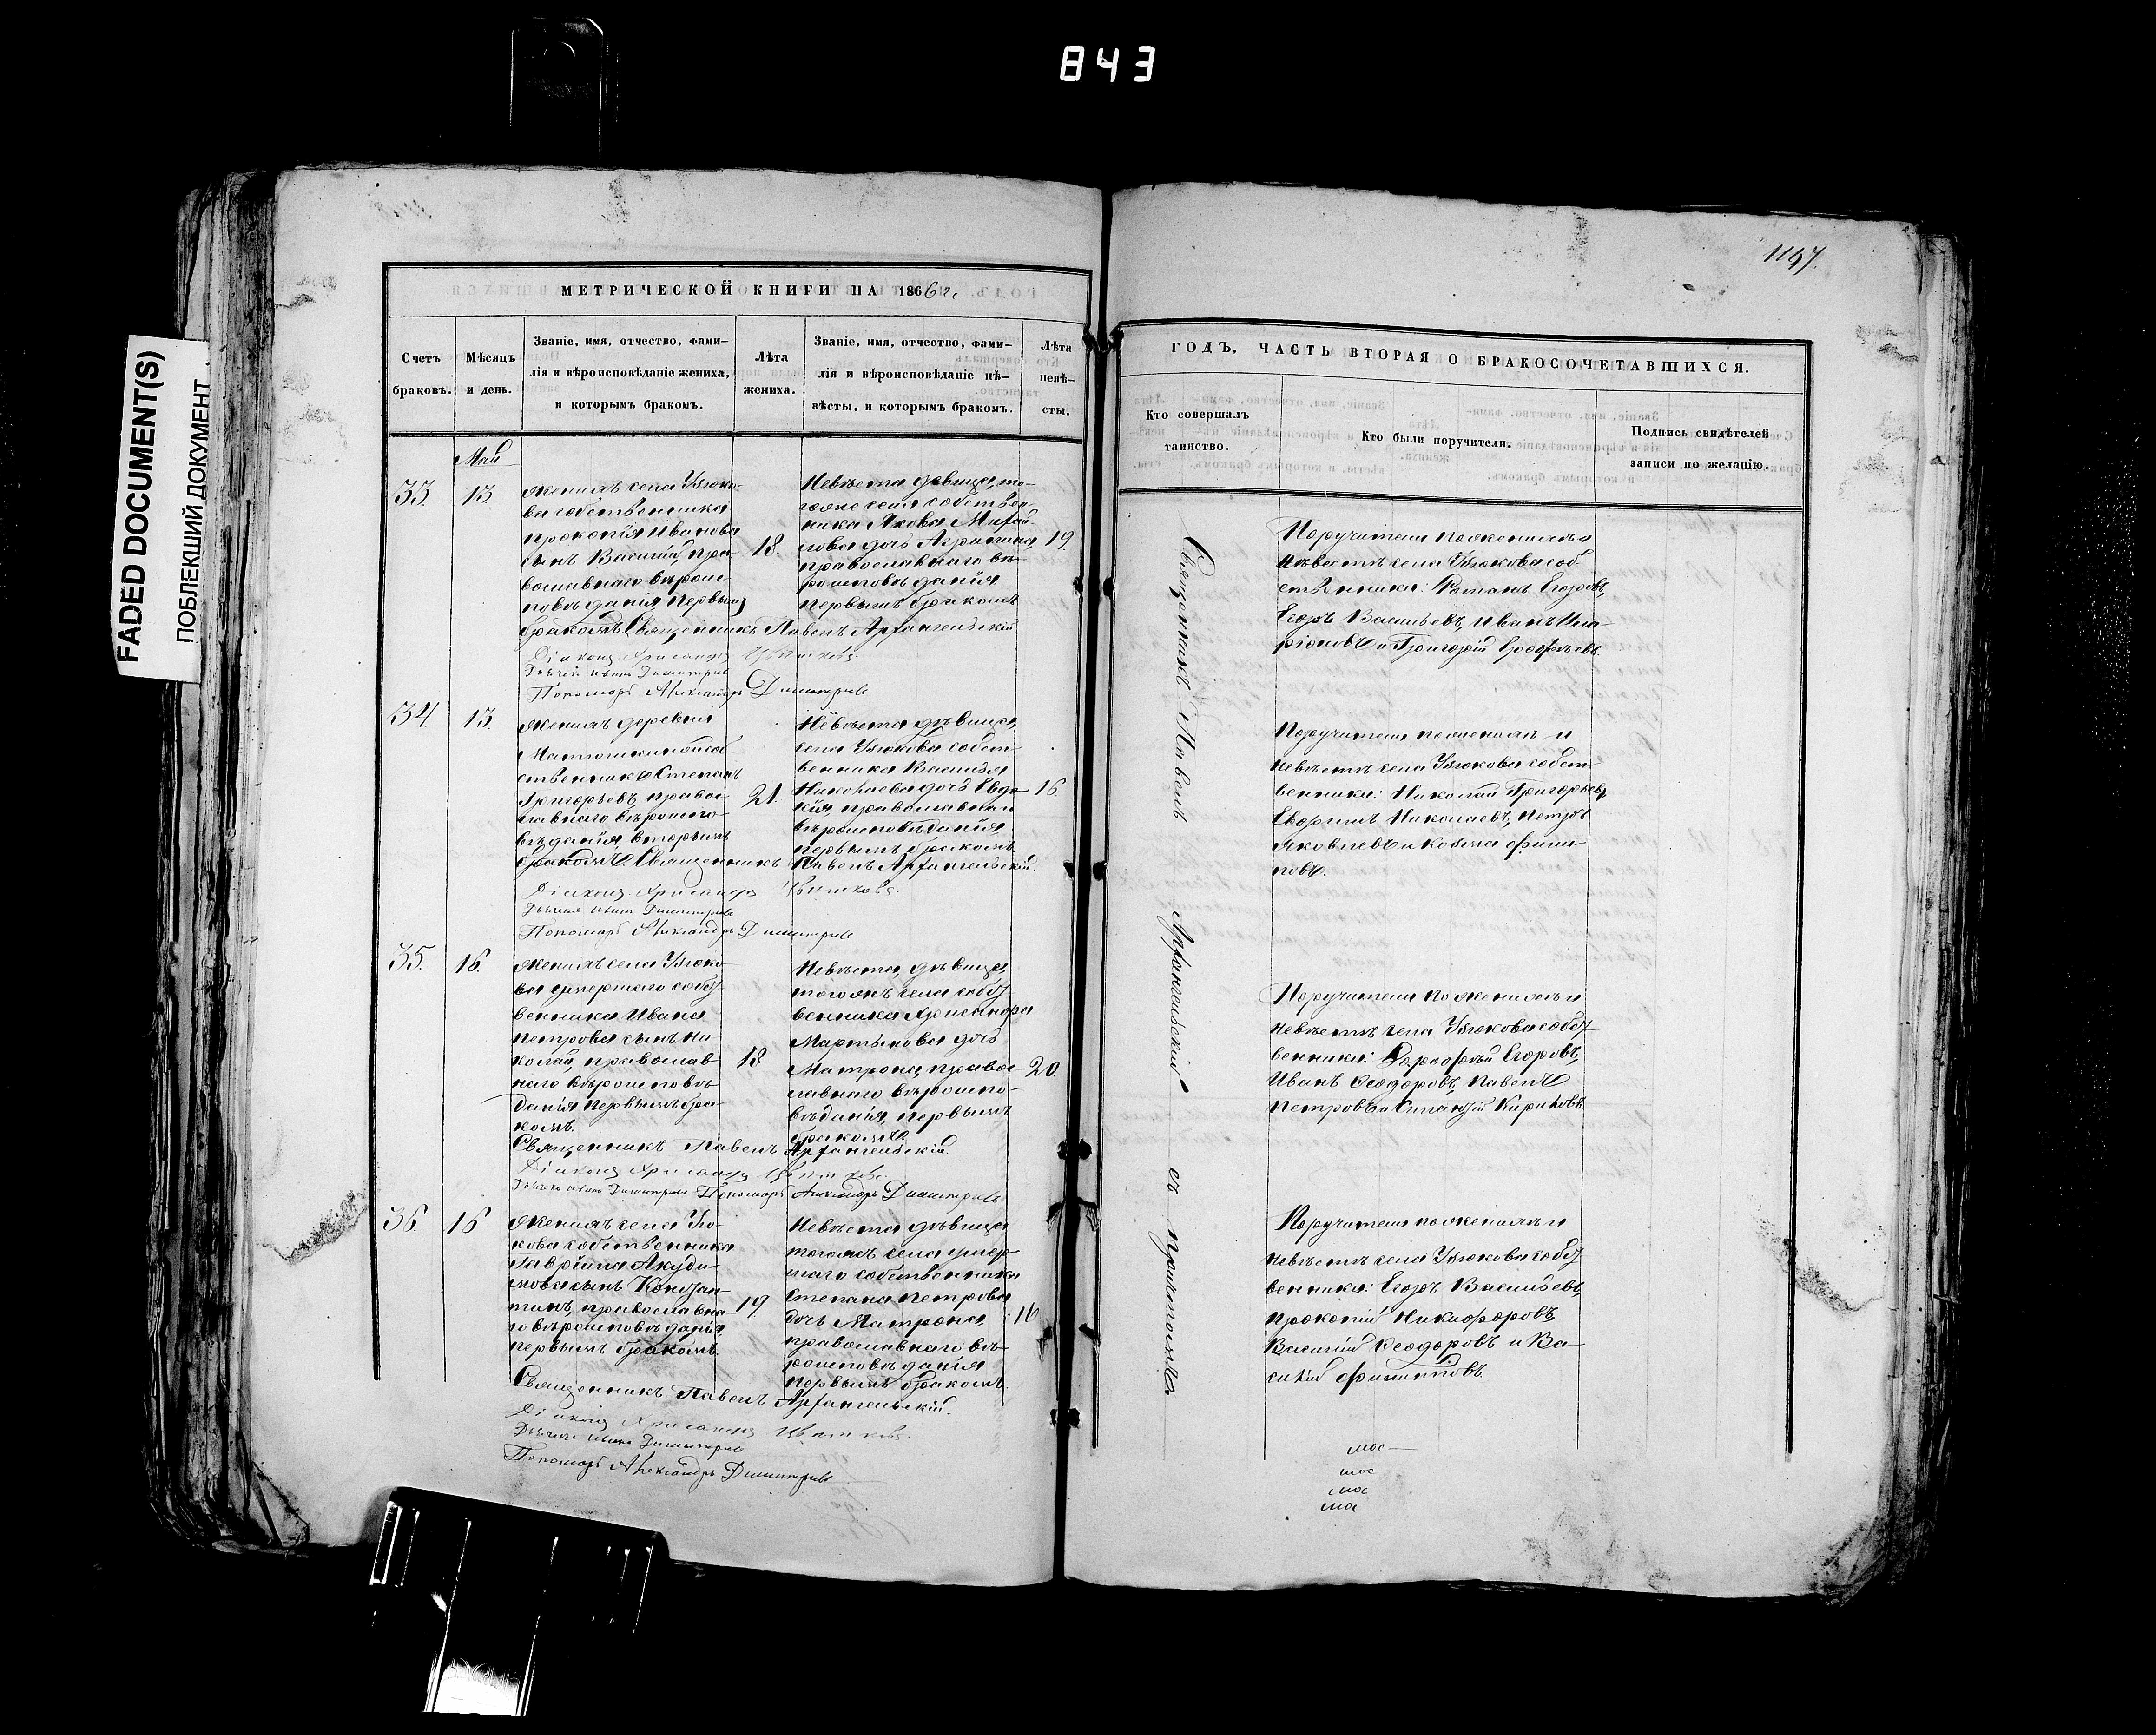 843
FADED DOCUMENT(S)
ПОБЛЕКШИЙ ДОКУМЕНТ
МЕТРИЧЕСКОЙ КНИГИ НА 1866 г.
Счетъ браковъ.
Мѣсяцъ и день.
Званіе, имя, отчество, фами-
лія и вѣроисповѣданіе жениха,
и которымъ бракомъ.
Лѣта жениха.
Званіе, имя, отчество, фами-
лія и вѣроисповѣданіе нѣ-
вѣсты, и которымъ бракомъ.
Лѣта невѣ-
сты.
Май
33.
13
Женихъ села Узюко-
ва собственника
Прокопія Иванова
сынъ Василий, пра-
вославнаго вѣроис-
повѣданія первымъ
бракомъ
18.
Невѣста девица, то-
гоже села собствен-
ника Якова Михай-
лова дочь Агрипина,
православнаго вѣ-
роисповѣданія
первымъ бракомъ
19.
Священникъ Павелъ Архангельскій
Діаконъ
Дьячекъ Иванъ Димитриевъ
Пономарь Александръ Димитриевъ
34.
13.
Женихъ деревни
соб-
ственникъ Степанъ
Григорьевъ, правос-
лавнаго вѣроиспо-
вѣданія, вторымъ
бракомъ
21.
Невѣста дѣвица,
села Узюкова собст-
венника Василья
Николаева дочь Евдо-
кія, православнаго
вѣроисповѣданія,
первымъ бракомъ
16
Священникъ Павелъ Архангельскій.
Діаконъ
Дьячекъ Иванъ Димитриевъ
Пономарь Александръ Димитриевъ
35.
16.
Женихъ села Узюко-
ва умершаго собст-
венника Ивана
Петрова сынъ Ни-
колай, православ-
наго вѣроисповѣ-
данія первымъ бра-
комъ.
18
Невѣста, дѣвица,
тогожъ села собст-
венника Александра
Мартынова дочь
Матрона, правос-
лавнаго вѣроиспо-
вѣданія, первымъ
бракомъ
20.
Священникъ Павелъ Архангельскій.
Діаконъ
Дьячекъ Иванъ Димитриевъ Пономарь Александръ Димитриевъ
36.
16
Женихъ села Узю-
кова собственника
Гавріила Акуди-
нова сынъ Констан-
тинъ, православна-
го вѣроисповѣданія,
первымъ бракомъ.
19.
Невѣста дѣвица
тогожъ села умер-
шаго собственника
Степана Петрова
дочь Матрона,
православнаго вѣ-
роисповѣданія
первымъ бракомъ.
16
Священникъ Павелъ Архангельскій.
Діаконъ
Дьячекъ Иванъ Димитриевъ
Пономарь Александръ Димитриевъ
ГОДЪ, ЧАСТЬ ВТОРАЯ О БРАКОСОЧЕТАВШИХСЯ.
Кто совершалъ
таинство.
Кто были поручители.
Подпись свидѣтелей
записи по желацію.
Священникъ Павелъ Архангельскій съ причтомъ
Поручители по женихѣ и
невѣстѣ села Узюкова соб-
ственники: Романъ Егоровъ,
Егоръ Васильевъ, Иванъ Ила-
ріоновъ и Григорій
Поручители по женихѣ и
невѣстѣ села Узюкова собст-
венники: Николай Григорьевъ,
Николаевъ, Петръ
Яковлевъ и Козма Филип-
повъ.
Поручители по женихѣ и
невѣстѣ села Узюкова собст-
венники: Дорофей Егоровъ,
Иванъ Ѳеодоровъ, Павелъ
Петровъ и Кириловъ.
Поручители по женихѣ и
невѣстѣ села Узюкова собст-
венники: Егоръ Васильевъ,
Прокопій Никифоровъ,
Василій Ѳеодоровъ и Ва-
силій Филипповъ.